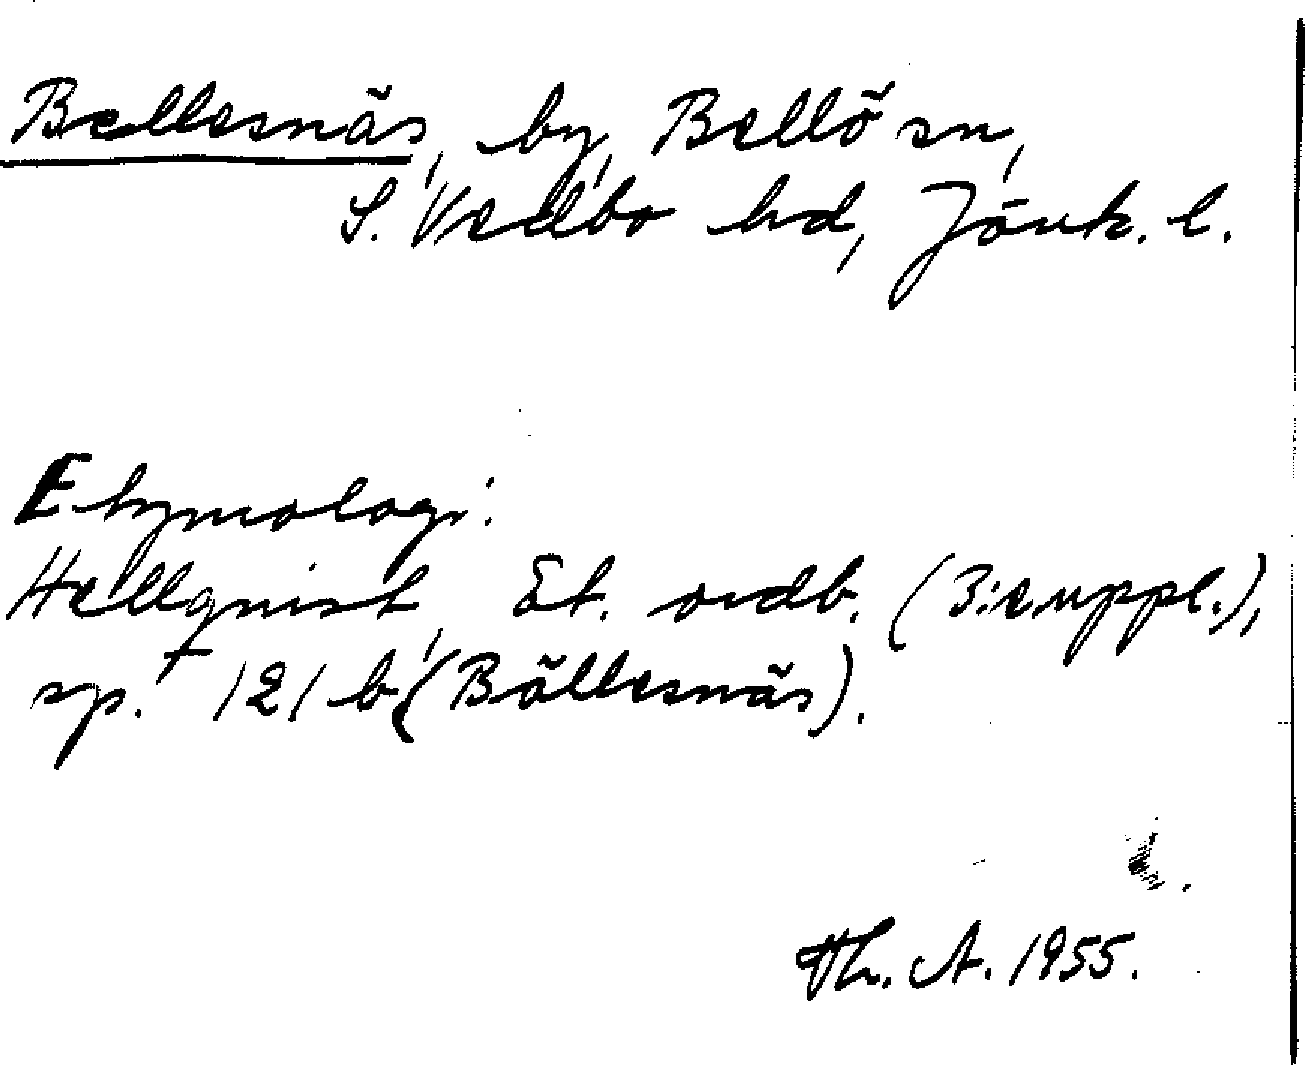 Bellesnäs, by, Bellö sn,
S. Vedbo hd, Jönk. l.
Etymologi:
Hellquist, Et. ordb. (3:e uppl.),
sp. 121 b (Bällesnäs).
Th. A. 1955.